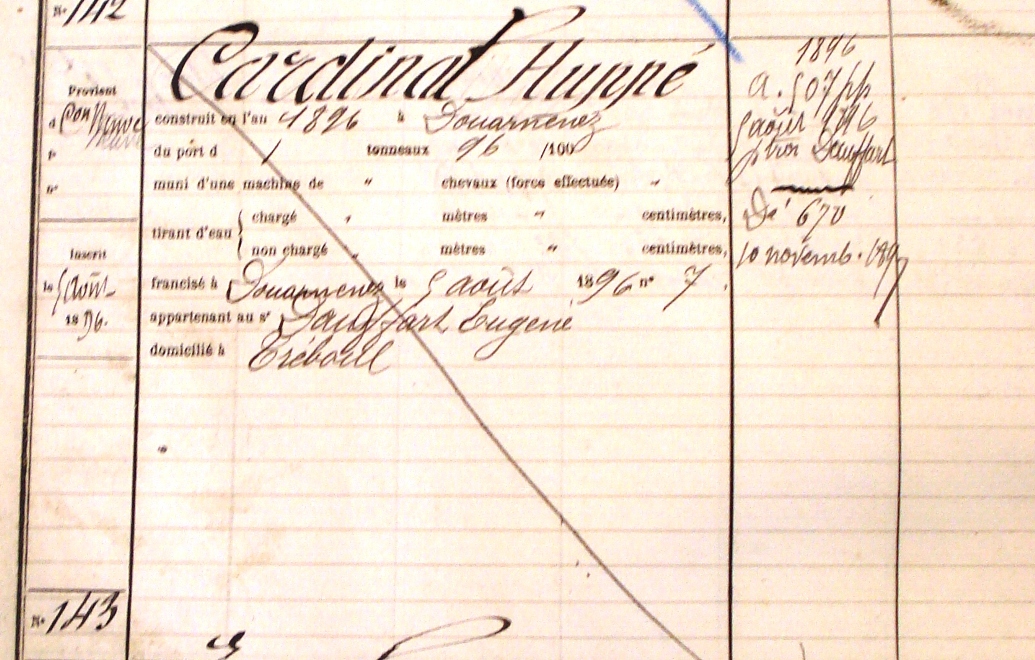 N° 142
Cardinal Huppé
Provient
d Con Neuve
p'
n°
construit en l'an 1896 à Douarnenez
du port d 1 tonneaux 96 /100
muni d'une machine de " chevaux (force effectuée) "
tirant d'eau { chargé " mètres " centimètres,
non chargé " mètres " centimètres,
Inscrit
le 5 août
1896.
francisé à Douarnenez le 5 août 1896 n° 7.
appartenant au sr Eugène
domicilié à Tréboul
1896
a. 507 pp
5 août 1896
Dé' 670
10 novemb. 1897
N° 143